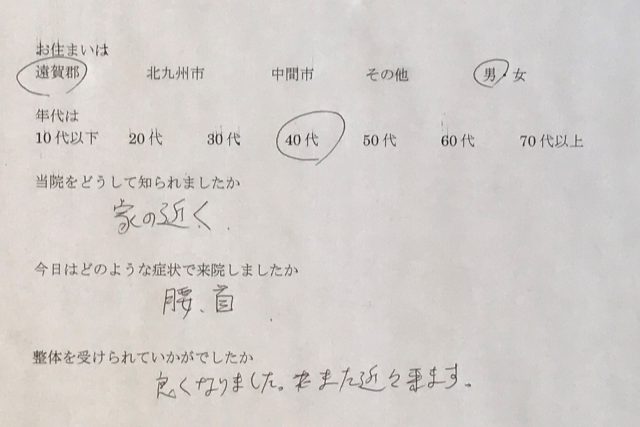 お住まいは
遠賀郡 北九州市 中間市 その他 男・女
年代は
10代以下 20代 30代 40代 50代 60代 70代以上
当院をどうして知られましたか
家の近く.
今日はどのような症状で来院しましたか
腰、首
整体を受けられていかがでしたか
良くなりました。また近々来ます。